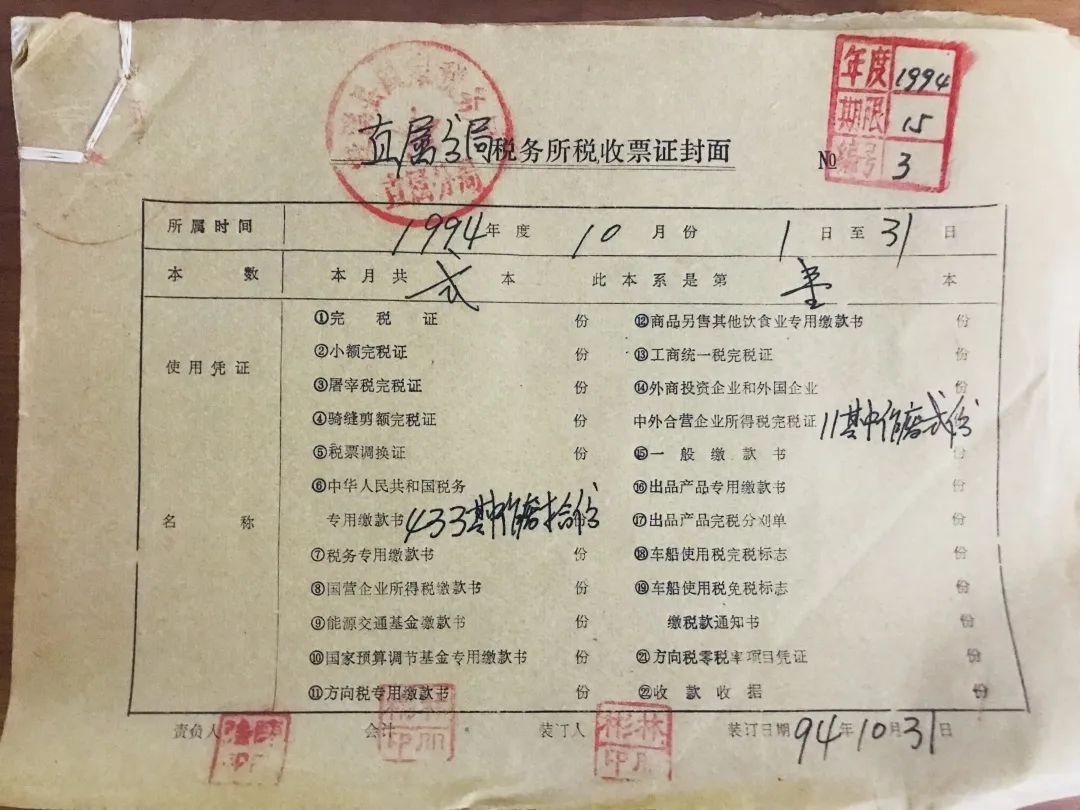 年度 1994
期限 15
编号 3
直属分局税务所税收票证封面 №
直属分局
所属时间 1994年度 10月份 1日至31日
本数 本月共弍本 此本系是第壹本
使用凭证
名称
①完税证 份
②小额完税证 份
③屠宰税完税证 份
④骑缝剪额完税证 份
⑤税票调换证 份
⑥中华人民共和国税务
专用缴款书 433其中作废拾份
⑦税务专用缴款书 份
⑧国营企业所得税缴款书 份
⑨能源交通基金缴款书 份
⑩国家预算调节基金专用缴款书 份
⑪方向税专用缴款书 份
⑫商品另售其他饮食业专用缴款书 份
⑬工商统一税完税证 份
⑭外商投资企业和外国企业 份
中外合营企业所得税完税证 11其中作废弍份
⑮一般缴款书 份
⑯出品产品专用缴款书 份
⑰出品产品完税分刈单 份
⑱车船使用税完税标志 份
⑲车船使用税免税标志 份
缴税款通知书 份
㉑方向税零税率项目凭证 份
㉒收款收据 份
责负人 会计 装订人 彬林印 装订日期 94年10月31日